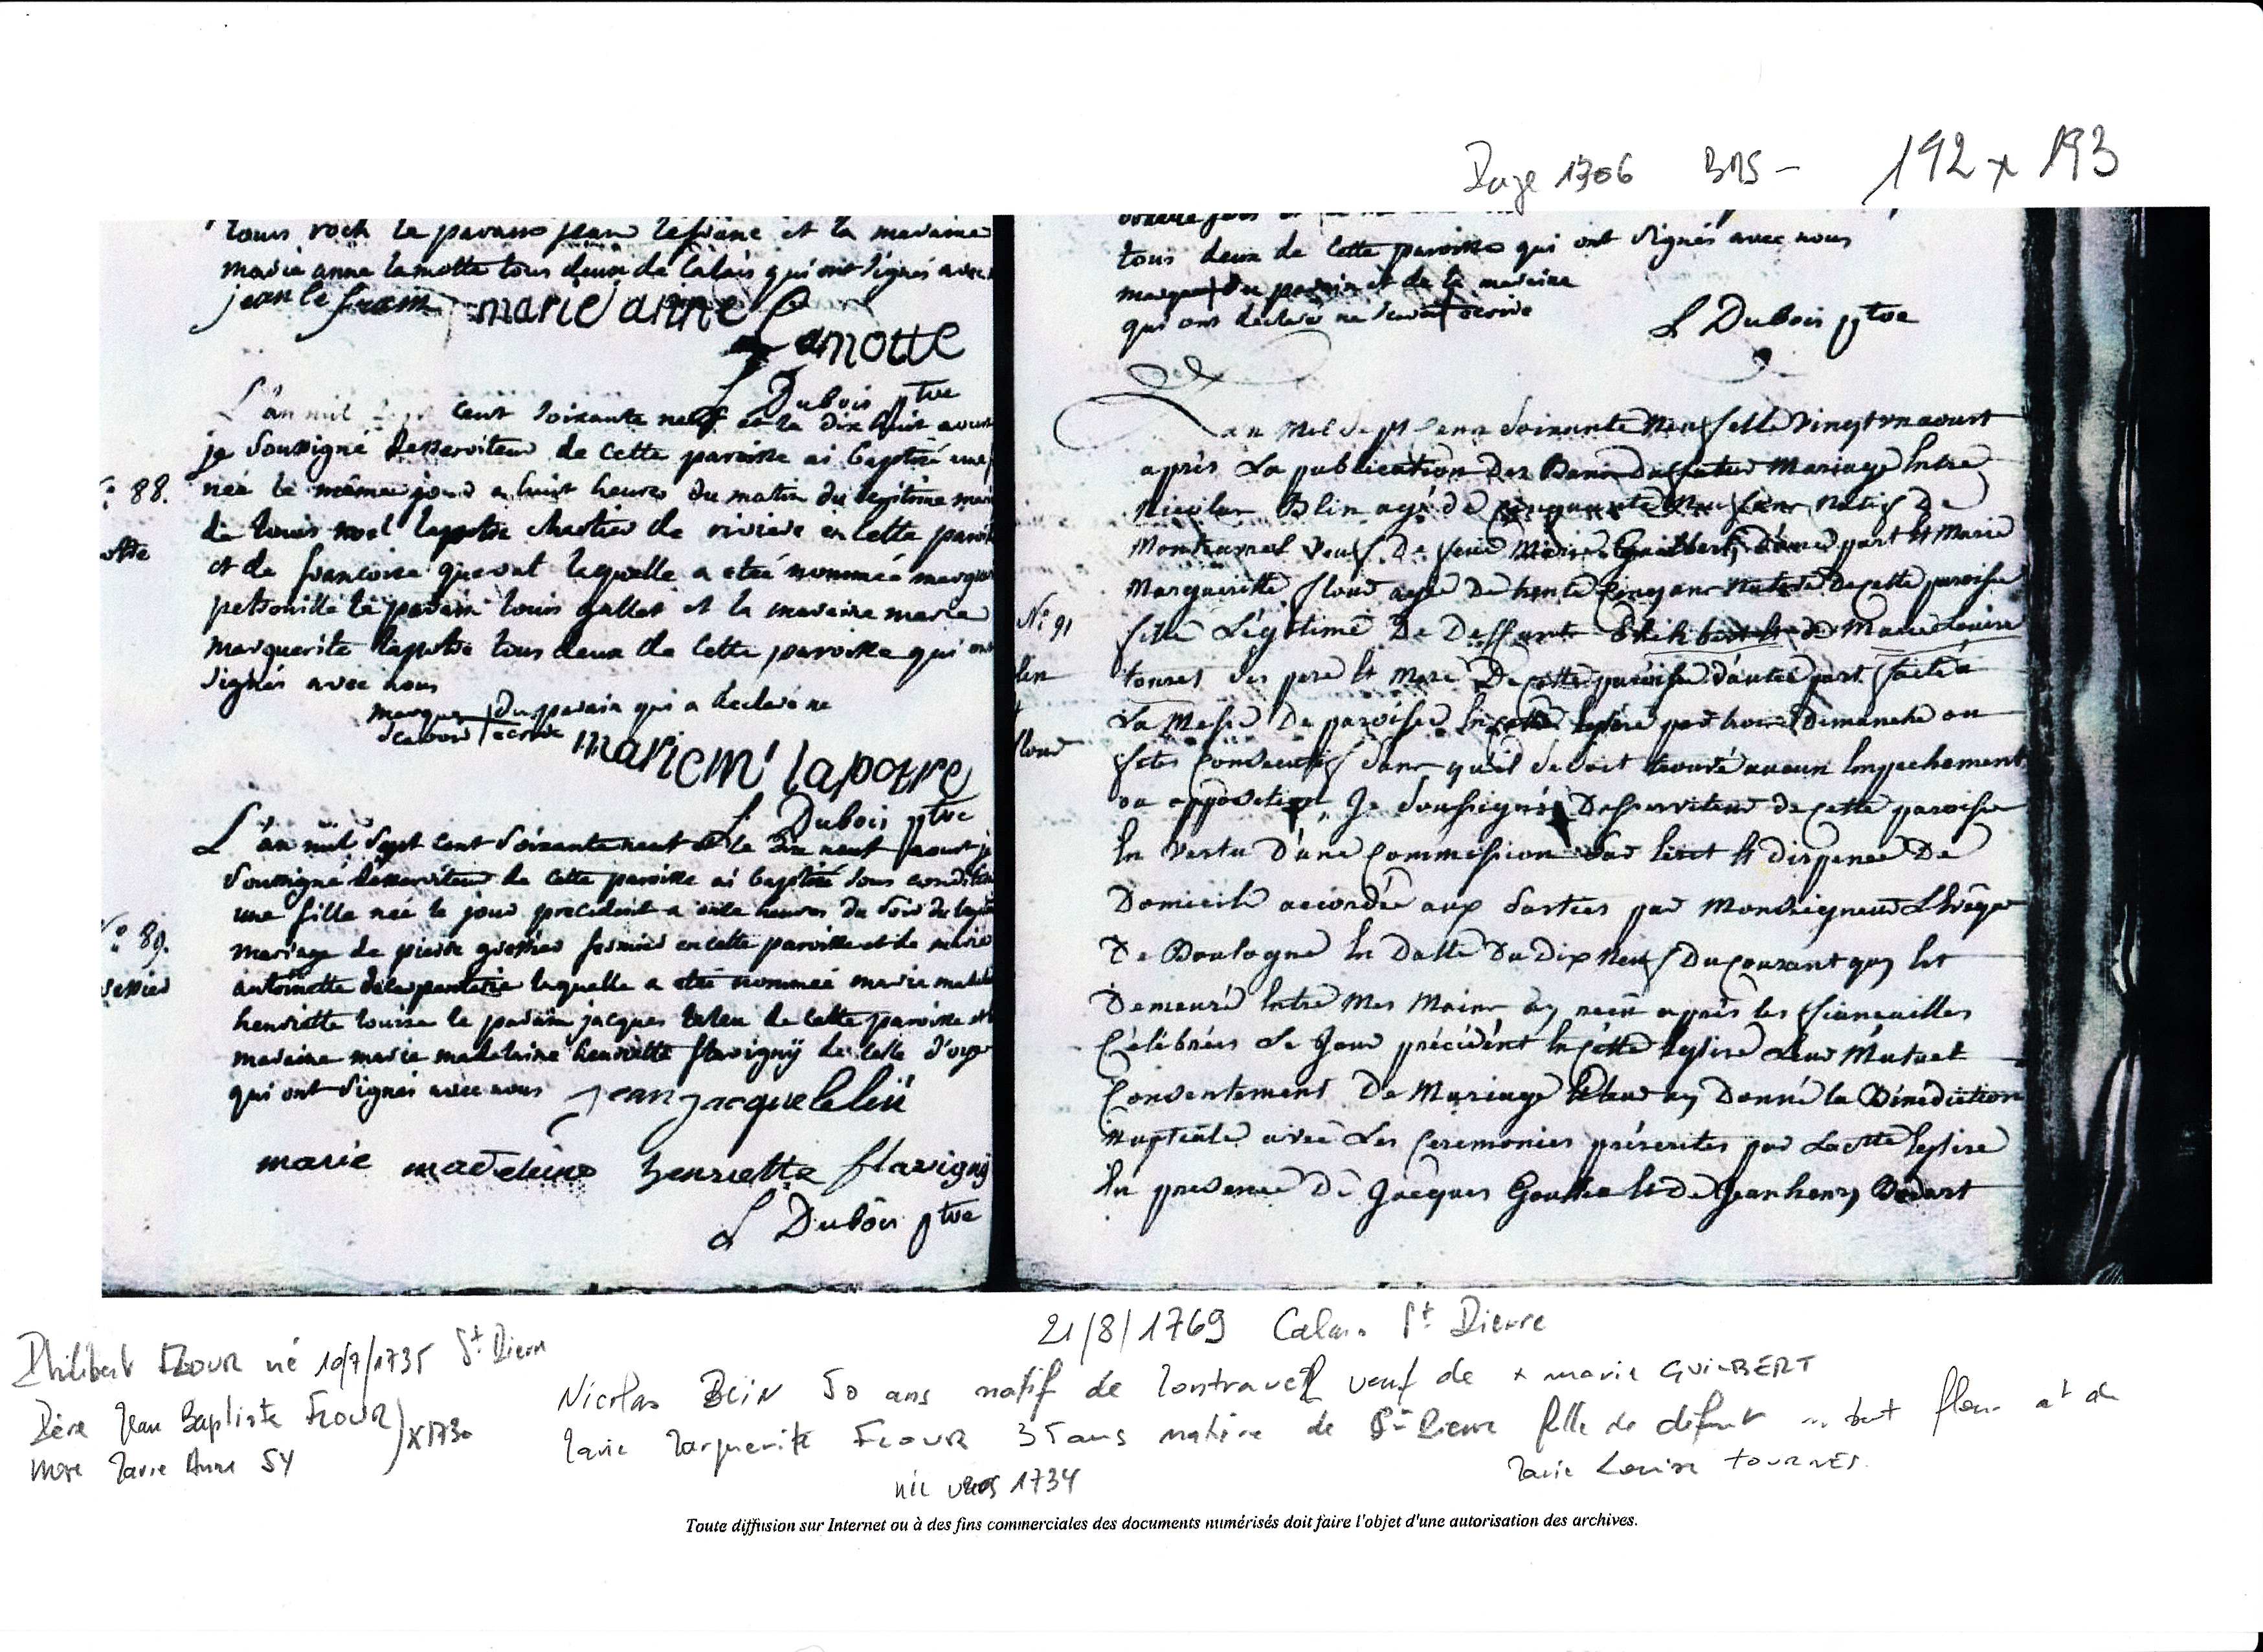 Page 1306 BMS - 192 x 193
louis roch le parain jean lefranc et la maraine
marie anne lamotte tous deux de Calais qui ont signés avec
jean le franc marie anne
Lamotte
L Dubois ptre
L'an mil sept cent soixante neuf et le dix huit aoust
je soussigné desserviteur de cette paroisse ai baptisé une
N° 88. née le même jour a huit heures du matin du legitime
de louis noel lapotre chartier de riviere en cette
et de francoise laquelle a eteé nommeé
petronille le parain louis gallet et la maraine marie
marguerite lapotre tous deux de cette paroisse qui ont
signés avec nous
marque du parain qui a declaré ne
scavoir ecrire
marie m lapotre
L Dubois ptre
L'an mil sept cent soixante neuf et le dix neuf aoust je
soussigné desserviteur de cette paroisse ai baptisé sous condition
une fille neé le jour precedent a onze heures du soir du
N° 89. mariage de pierre gressier fermier en cette paroisse et de marie
antoinette laquelle a eteé nommeé marie
henriette louise le parain jacques leleu de cette paroisse et
maraine marie madelaine henriette flavigny de celle d'oye
qui ont signés avec nous jean jacque leleu
marie madeleine henriette flavigny
L Dubois ptre
tous deux de cette paroisse qui ont signés avec nous
marque du parain et de la maraine
qui ont declaré ne scavoir ecrire
L Dubois ptre
Lan Mil Sept Cent Soixante Neuf et le Vingt un aoust
après La publication Des Bans Du futur Mariage Entre
Nicolas Blin agé de Cinquante ans Natif De
Veuf De feue Marie Guilbert, D'une part Et Marie
Margueritte flour agée De trente Cinq ans Native De cette paroisse
N° 91 fille Légitime De Deffunt et de Marie Louise
tournes ses pere Et Mere De cette paroisse d'autre part, faite a
La Messe De paroisse En cette Eglise par trois Dimanche ou
flour fetes Consecutifs sans qu'il se soit trouvé aucun Empechement
ou opposition, Je Soussigné Desserviteur de cette paroisse
En Vertu D'une Commission Et dispense De
Domicile accordée aux parties par Monseigneur L'Evêque
De Boulogne En Datte Du Dix Neuf Du Courant qui Est
Demeuré Entre Mes Mains ay reçu après les fiancailles
Célébrées Le Jour précédent En cette Eglise Leur Mutuel
Consentement De Mariage Et leur ay Donné la Bénédiction
Nuptiale avec Les Ceremonies présentes par La Ste Eglise
En presence De Jacques Et De Jean henry
21/8/1769 Calais St Pierre
Philibert FLOUR né 10/7/1735 St Pierre
Père Jean Baptiste FLOUR
Mère Marie Anne SY
X 1730
Nicolas BLIN 50 ans natif de veuf de + marie GUILBERT
Marie Marguerite FLOUR 35 ans native de St Pierre fille de défunt ... bert flour et de
Marie Louise TOURNES.
née vers 1734
Toute diffusion sur Internet ou à des fins commerciales des documents numérisés doit faire l'objet d'une autorisation des archives.